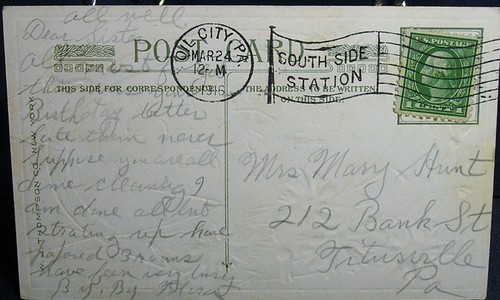 all well.
Dear Sister
POST CARD
OIL CITY, PA.
MAR 24
12-M
1916
SOUTH SIDE
STATION
U.S. POSTAGE
THIS SIDE FOR CORRESPONDENCE
THE ADDRESS TO BE WRITTEN
ON THIS SIDE.
Birthday better
late then never
suppose you are all
done cleaning I
am done all but
up have
papered 3 rooms
have been very busy
By. By
THOMPSON CO. NEW YORK
Mrs Mary Hunt
212 Bank St
Titusville
Pa